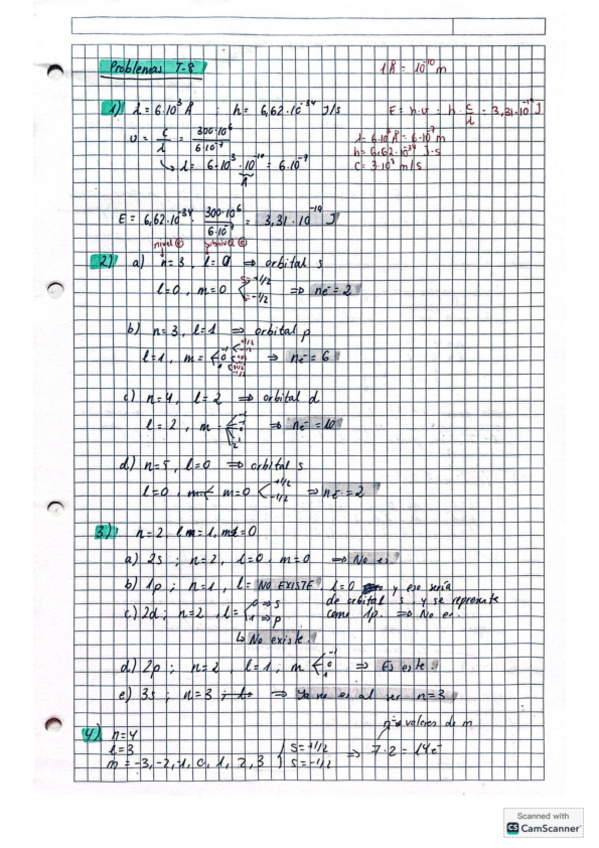 Problemas T-8
1 Å = 10^-10 m
1) λ = 6·10^3 Å ; h = 6,62·10^-34 J/s
E = h·ν = h · c/λ = 3,31·10^-19 J
ν = c/λ = 300·10^6 / 6·10^-7
λ = 6·10^3 Å = 6·10^-7 m
h = 6,62·10^-34 J·s
c = 3·10^8 m/s
↳ λ = 6·10^3 · 10^-10 = 6·10^-7
Å
E = 6,62·10^-34 · 300·10^6 / 6·10^-7 = 3,31·10^-19 J
2) a) n = 3, l = 0 ⇒ orbital s
l = 0, m = 0 < s=+1/2 s=-1/2 ⇒ ne⁻ = 2
b) n = 3, l = 1 ⇒ orbital p
l = 1, m = < -1 0 1 +1/2 -1/2 +1/2 -1/2 +1/2 -1/2 ⇒ ne⁻ = 6
c) n = 4, l = 2 ⇒ orbital d
l = 2, m = ⇒ ne⁻ = 10
d) n = 5, l = 0 ⇒ orbital s
l = 0, m = 0 < +1/2 -1/2 ⇒ ne⁻ = 2
3) n = 2, l = 1, m = 0
a) 2s ; n = 2, l = 0, m = 0 ⇒ No es.
b) 1p ; n = 1, l = NO EXISTE, l = 0 y eso sería
de orbital s y se represente
c) 2d ; n = 2, l = < 0 ⇒ s 1 ⇒ p
como 1p. ⇒ No es.
↳ No existe.
d) 2p ; n = 2, l = 1, m < -1 0 1 ⇒ Es este.
e) 3s ; n = 3 ⇒ Ya no es al ser n = 3
4) n = 4
nº valores de m
l = 3
m = -3, -2, -1, 0, 1, 2, 3 S = +1/2 S = -1/2 ⇒ 7·2 = 14e⁻
Scanned with
CS CamScanner